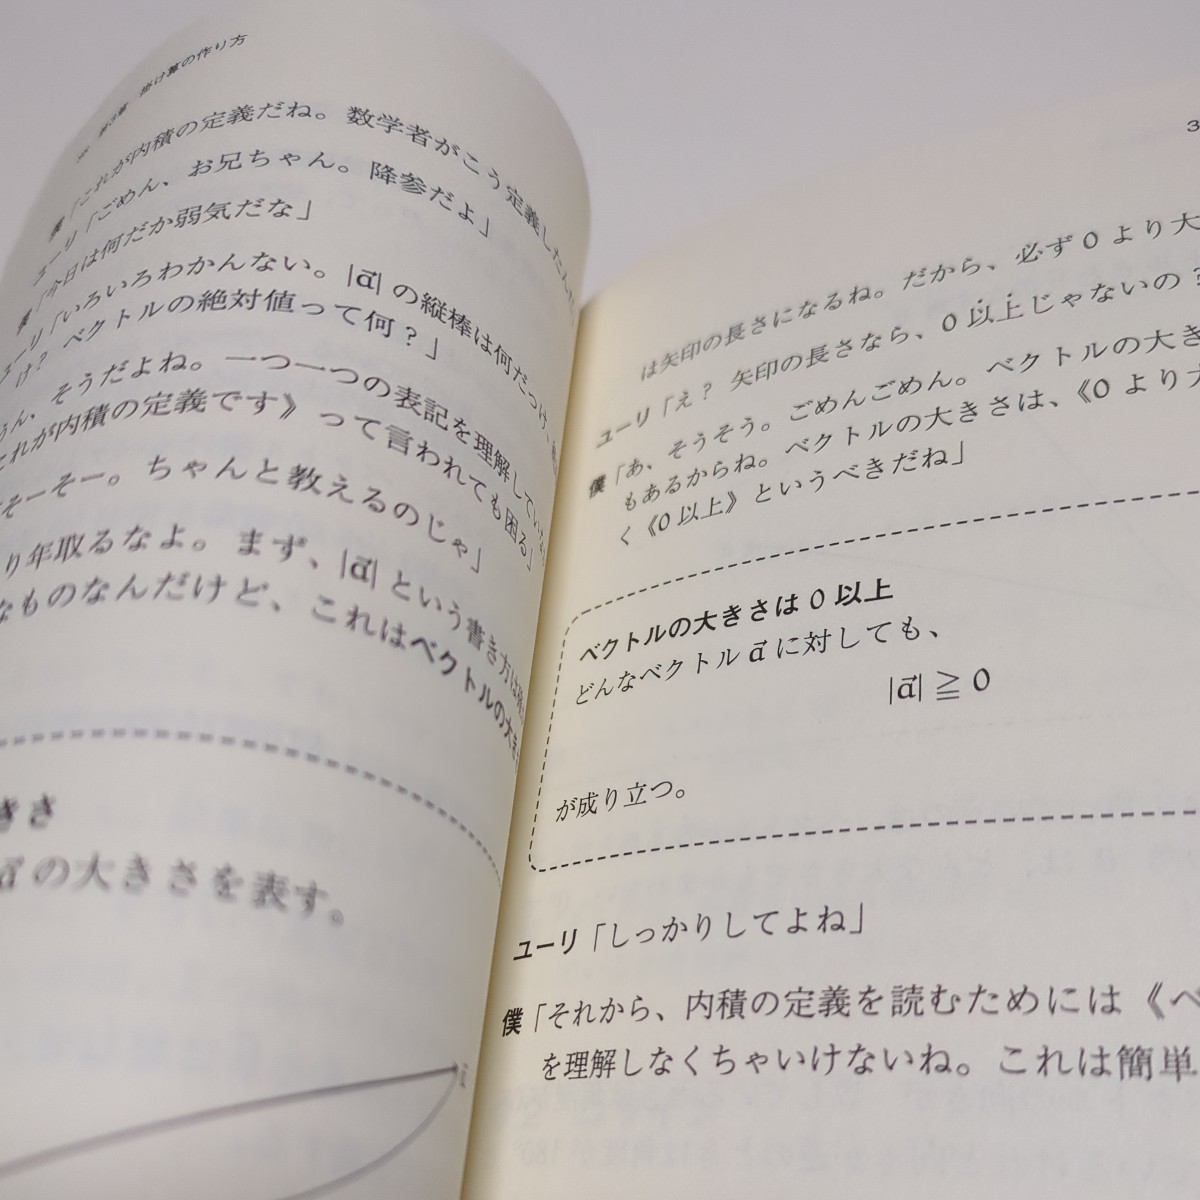 第3章 掛け算の作り方
僕「これが内積の定義だね。数学者がこう定義したんだ
ユーリ「ごめん、お兄ちゃん。降参だよ」
僕「今日は何だか弱気だな」
ユーリ「いろいろわかんない。|a⃗|の縦棒は何だっけ、
け? ベクトルの絶対値って何?」
うん、そうだよね。一つ一つの表記を理解していない
これが内積の定義です》って言われても困る」
そーそー。ちゃんと教えるのじゃ」
り年取るなよ。まず、|a⃗|という書き方は
なものなんだけど、これはベクトルの大き
きさ
a⃗の大きさを表す。
a⃗
3
は矢印の長さになるね。だから、必ず0より大
ユーリ「え? 矢印の長さなら、0以上じゃないの?
僕「あ、そうそう。ごめんごめん。ベクトルの大き
もあるからね。ベクトルの大きさは、《0より大
く《0以上》というべきだね」
ベクトルの大きさは0以上
どんなベクトルa⃗に対しても、
|a⃗| ≧ 0
が成り立つ。
ユーリ「しっかりしてよね」
僕「それから、内積の定義を読むためには《ベ
を理解しなくちゃいけないね。これは簡単